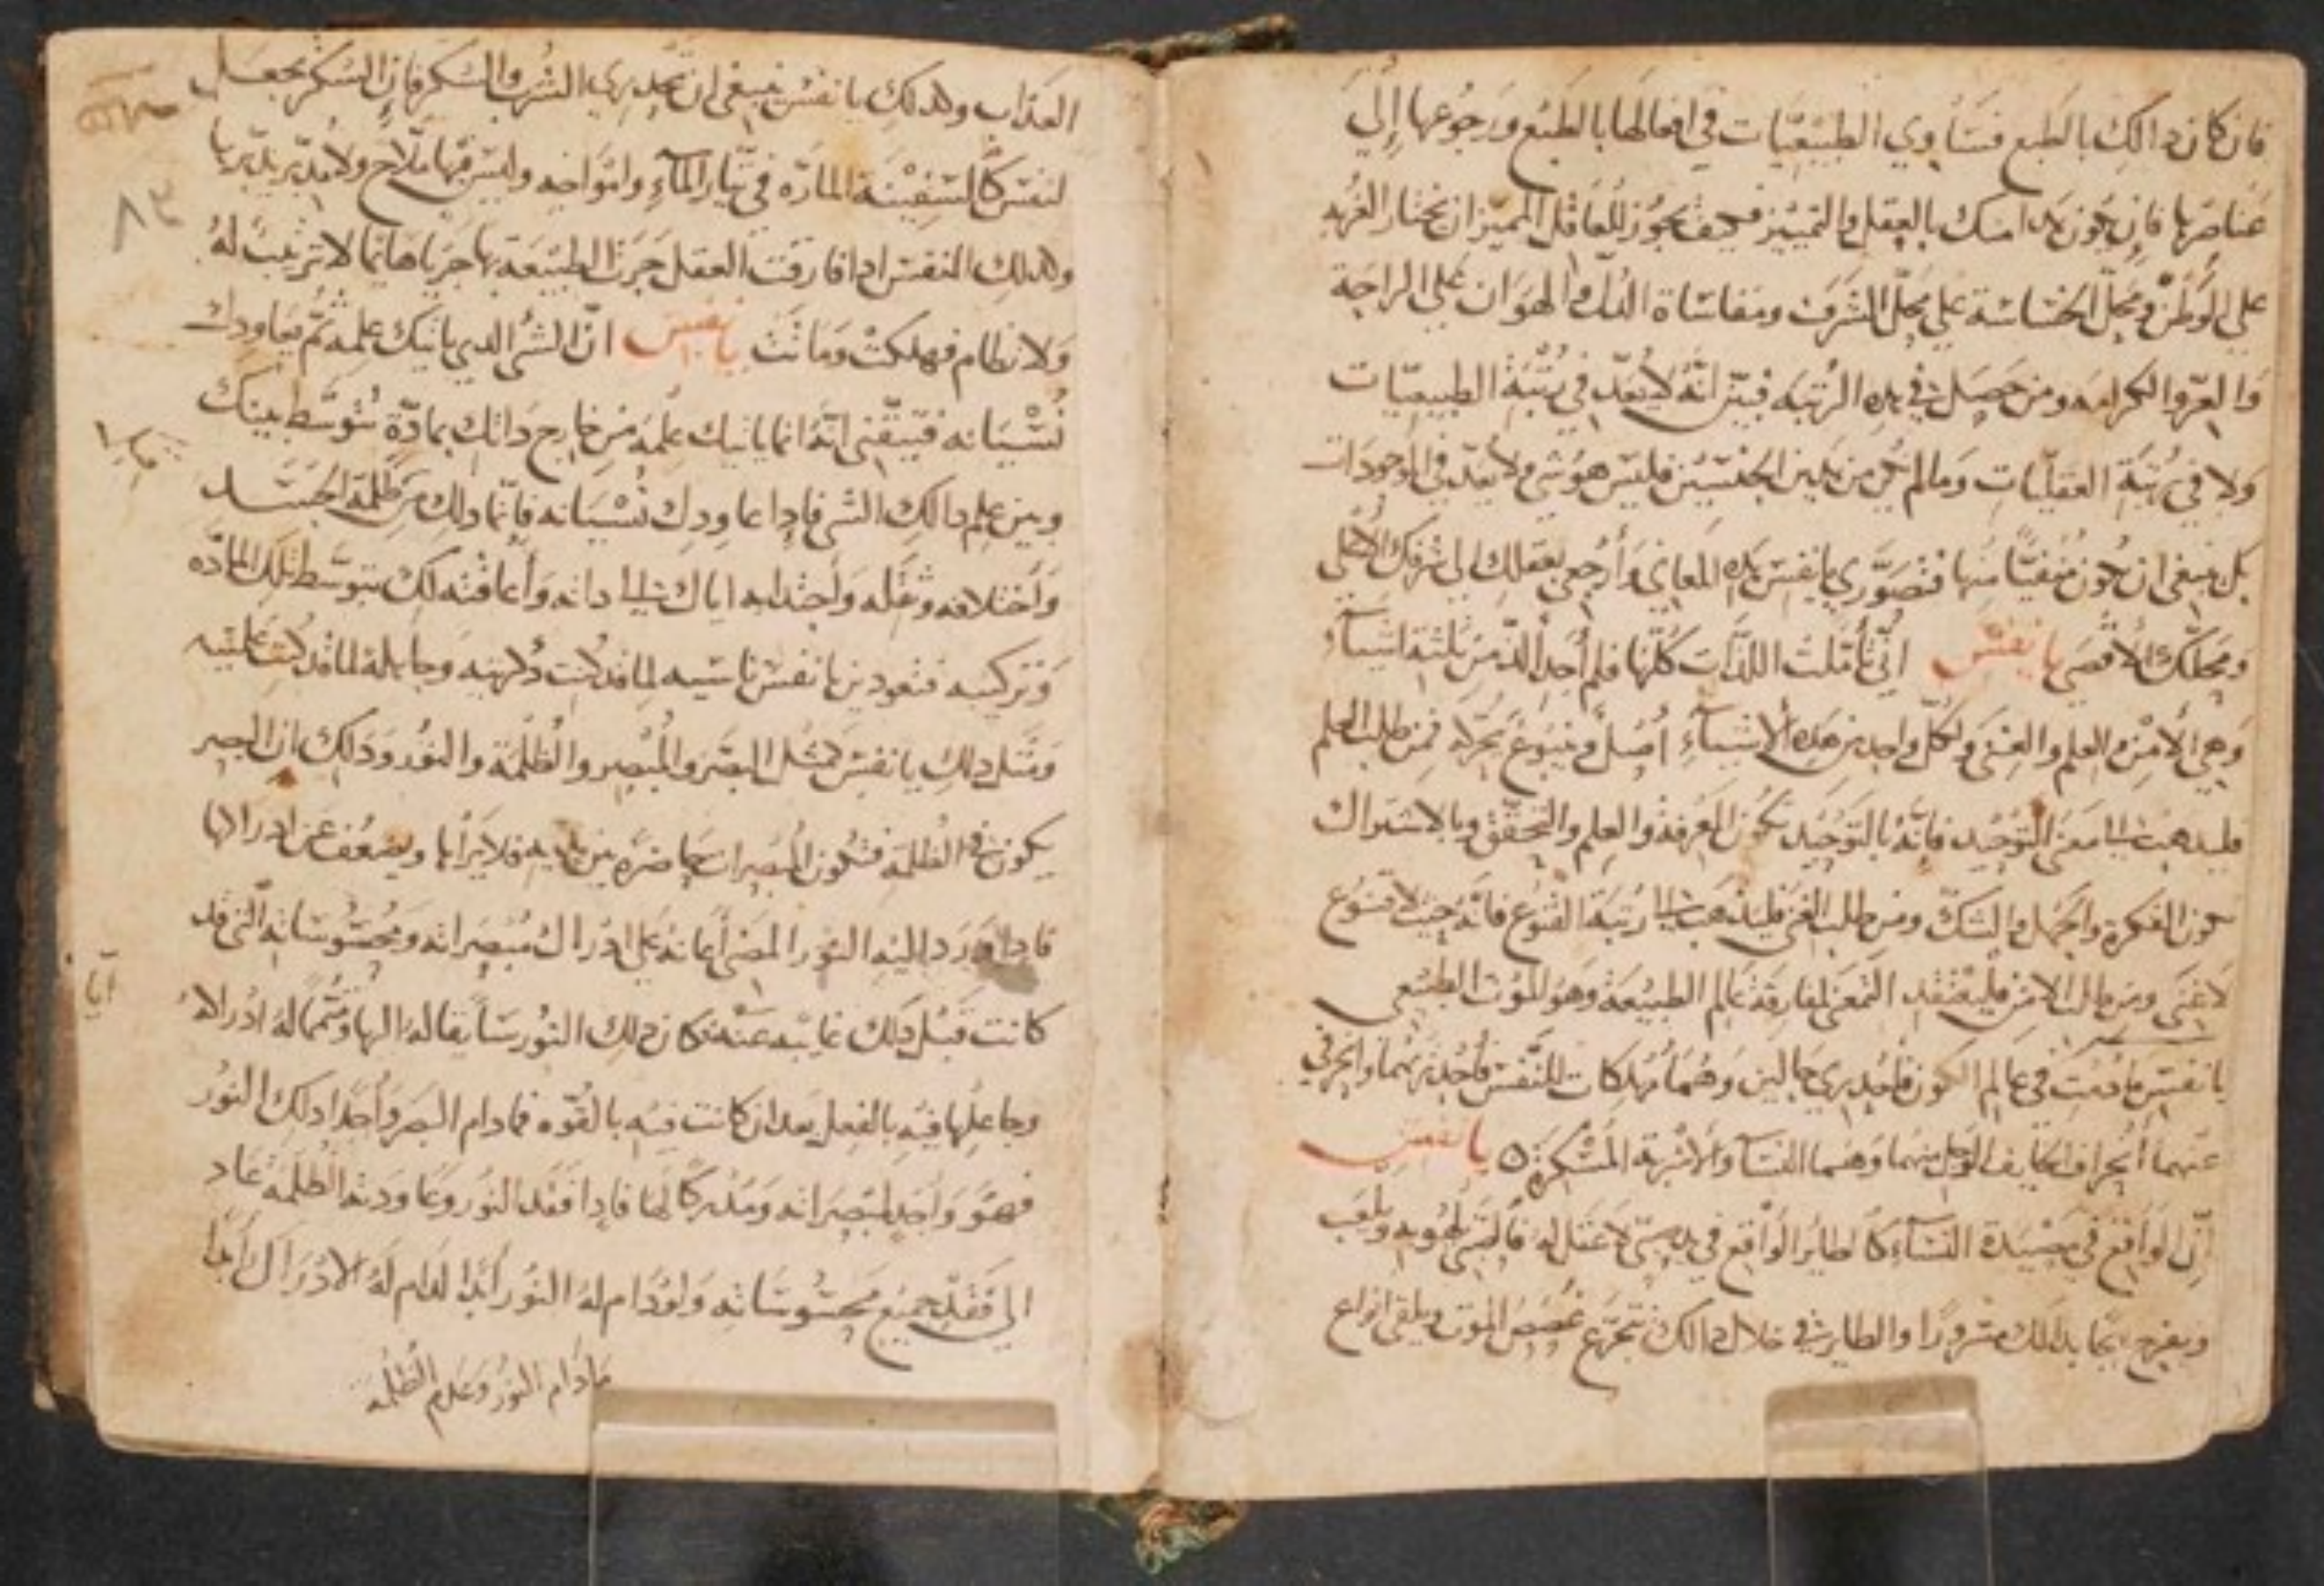 فان كان دالك بالطبع فتساوي الطبيعيات في افعالها بالطبع ورجوعها إلى
عناصرها فان يكون هدا منك بالعقل والتمييز فكيف يجوز للعاقل المميز ان يختار الغربه
على الوطن ومحل الخساسة على محل الشرف ومقاساة الدل والهوان على الراحة
والعز والكرامه ومن حصل في هده الرتبه فبين انه لا يعد في رتبة الطبيعيات
ولا في رتبة العقليات وما لم يكن من هدين الجنسين فليس هو شي ولا يعد في الموجودات
بل ينبغي ان يكون منفيا منها فتصوري يا نفس هده المعاني وأرجعي بعقلك الى شرفك الأعلى
ومحلك الأقصى يا نفس اني تأملت اللذات كلها فلم أجد ألد من ثلثة اشيآء
وهي الأمن والعلم والغنى ولكل واحد من هده الأشيآء أصل وينبوع يحركه فمن طلب العلم
فليدهب الى معنى التوحيد فانه بالتوحيد تكون المعرفة والعلم والتحقق وبالاشراك
تكون النكرة والجهل والشك ومن طلب الغنى فليدهب الى رتبة القنوع فانه حيث لا قنوع
لا غنى ومن طلب الامن فليعتقد التمعن لمفارقة عالم الطبيعة وهو الموت الطبيعي
يا نفس ما دمت في عالم الكون فأحدري حالين وهما مهلكات للنفس فأحدريهما وانحرفي
عنهما أنحراف الخايف الوجل منهما وهما النسآ والأشربة المسكرة ٥ يا نفس
إن الواقع في مصيدة النسآء كالطاير الواقع في يد صبي لا عقل له فالصبي يلهو به ويلعب
ويفرح أنما بدلك مسرورا والطاير في خلال دالك يتجرع غصص الموت ويلقى انواع
العداب وكدلك يا نفس ينبغي ان تحدري الشرب والسكر فان السكر يجعل
النفس كالسفينة المارة في تيار المآء وامواجه وليس فيها ملاح ولا مدبر يدبرها
وكدلك النفس ادا فارقت العقل جرت الطبيعة بها جريا هايما لا ترتيب له
ولا نظام فهلكت وماتت يا نفس ان الشي الدي يأتيك علمه ثم يعاودك
نسيانه فتيقني انه انما ياتيك علمه من خارج داتك بمادة تتوسط بينك
وبين علم دالك الشي فادا عاودك نسيانه فانما دلك من ظلمة الجسد
وأختلافه وثقله وأجتدابه اياك الى داته وأعاقته لك بتوسط تلك المادة
وتركيبه فتعودين يا نفس ناسيه لما قد كنت داكرته وجاهلة لما قد كنت علمتيه
ومثل دلك يا نفس كمثل البصر والمبصر والظلمة والنور ودلك ان البصر
يكون في الظلمة فتكون المبصرات حاضرة بين يديه فلا يراها ويضعف عن ادراكها
فادا ورد اليه النور المضي أعانه على ادراك مبصراته ومحسوساته التي قد
كانت قبل دلك غايبه عنه فكان دلك النور سايقا له اليها ومتمما له ادراكه
وجاعلها فيه بالفعل بعد ان كانت فيه بالقوه فما دام البصر وأجدا دلك النور
فهو واجد لمبصراته ومدركا لها فادا فقد النور وعاودته الظلمة عاد
الى فقد جميع محسوساته ولو دام له النور أبدا لدام له الادراك أبدا
ما دام النور وعدم الظلمة
٨٣